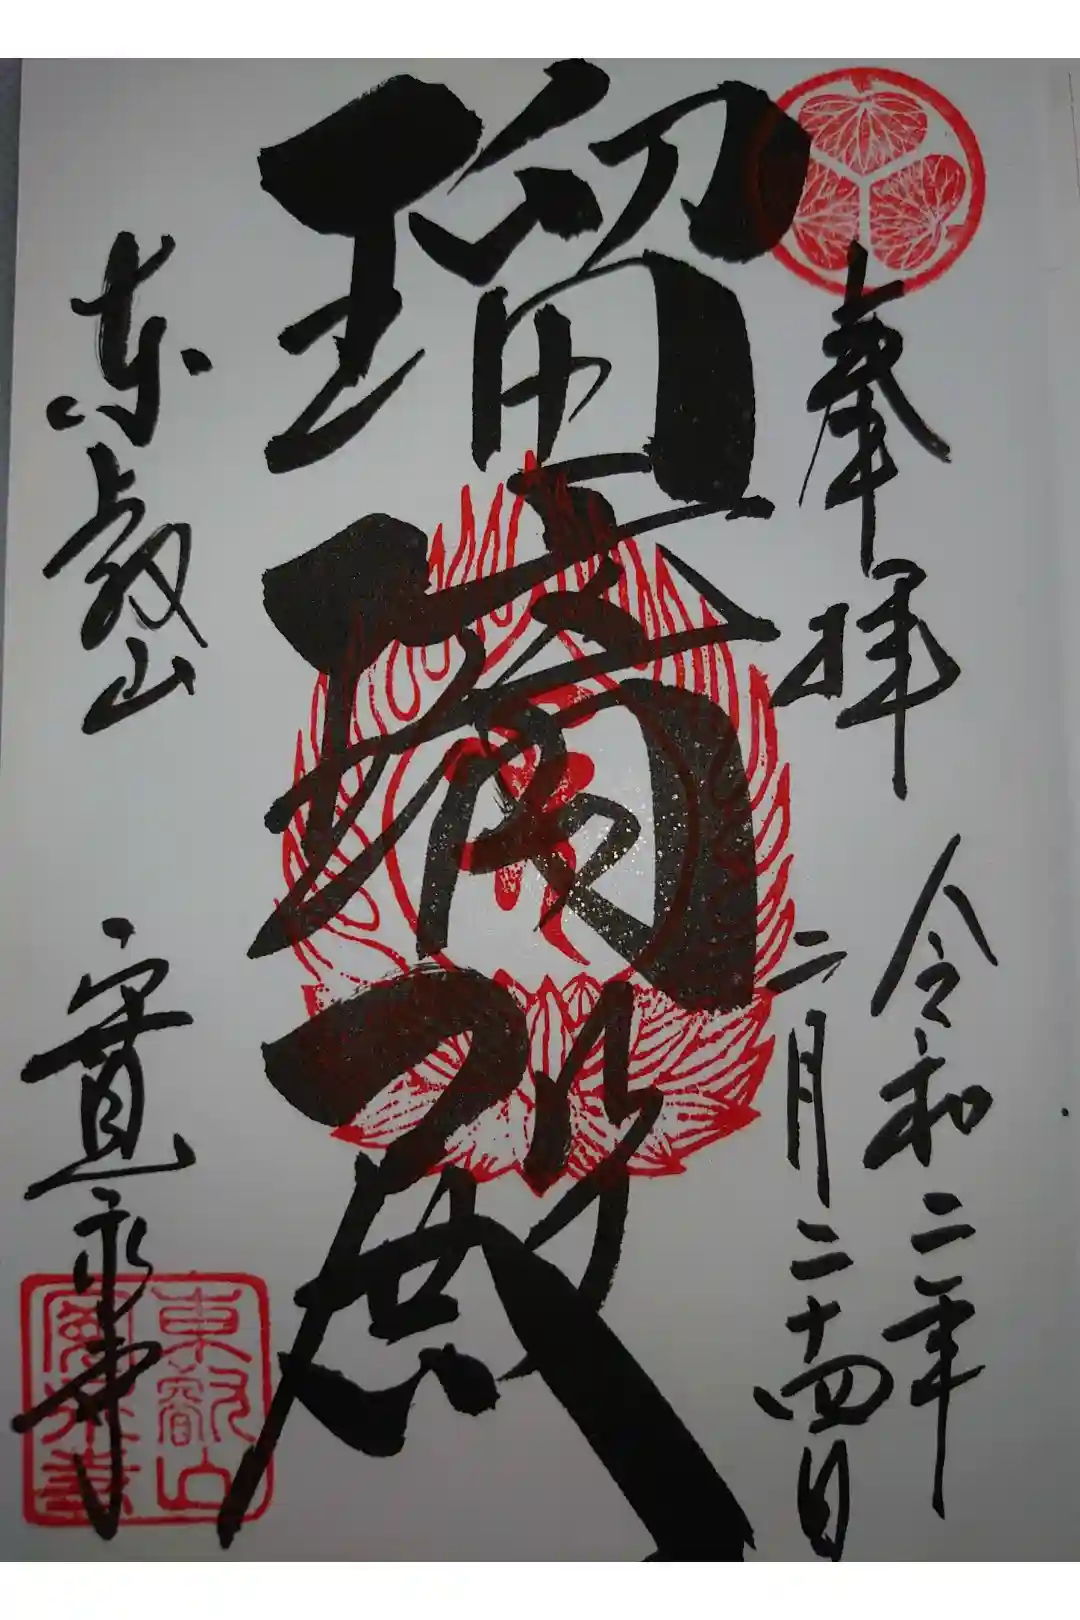 奉拝
令和二年
二月二十四日
瑠璃殿
東叡山
寛永寺
東叡山
寛永寺